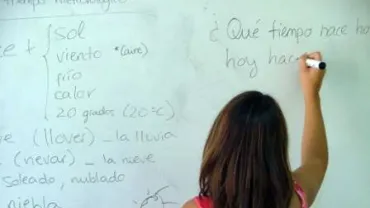 Tiempo meteorológico
+ sol
viento *(aire)
frío
calor
20 grados (20 ºC)
(llover) _ la lluvia
(nevar) _ la nieve
soleado, nublado
niebla
¿Qué tiempo hace ho
hoy hac